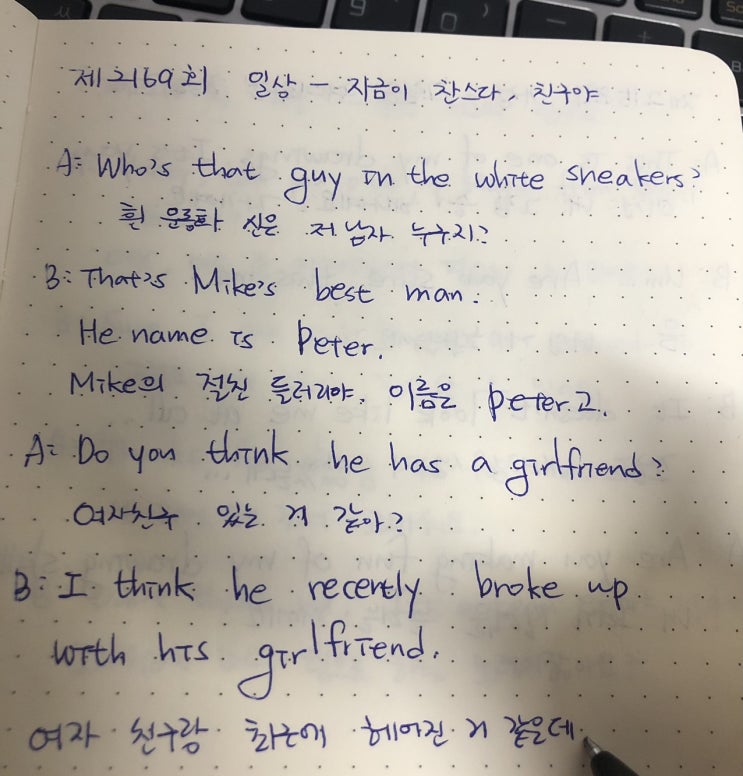 제2169회 일상 - 지금이 찬스다, 친구야
A: Who's that guy in the white sneakers?
흰 운동화 신은 저 남자 누구지?
B: That's Mike's best man.
He name is Peter.
Mike의 절친 들러리야. 이름은 peter고.
A: Do you think he has a girlfriend?
여자친구 있는 거 같아?
B: I think he recently broke up
with his girlfriend.
여자 친구랑 최근에 헤어진 거 같은데